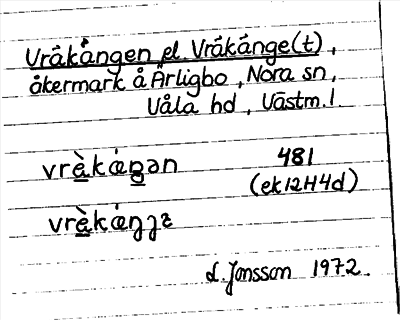 Vråkången el. Vråkånge(t),
åkermark å Ärligbo, Nora sn,
Våla hd, Västm.l.
vrὰ̱kάŋən 481
(ek12H4d)
vrὰ̱kάŋʒε
L. Jonsson 1972.